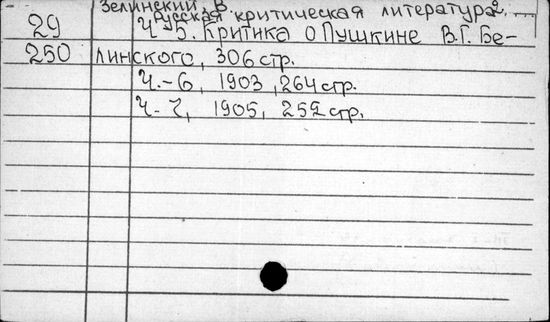 Зелинский, В.
Русская критическая литература 2.
29 Ч 5. Критика о Пушкине В.Г. Бе-
250 линского, 306 стр.
Ч.-6, 1903, 264 стр.
Ч.-7, 1905, 252 стр.